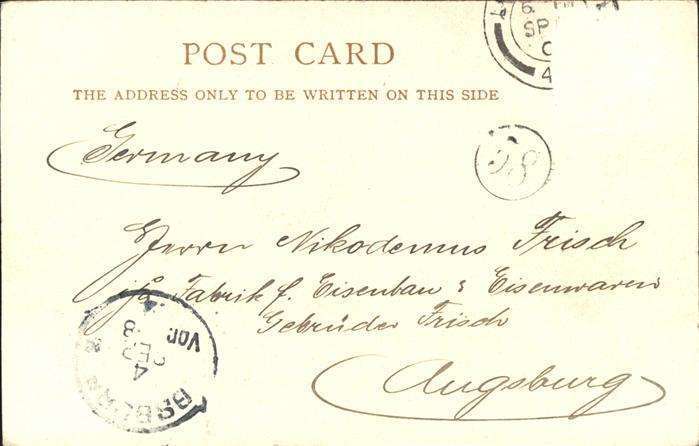 POST CARD
THE ADDRESS ONLY TO BE WRITTEN ON THIS SIDE
Germany
Herrn Nikodemus Frisch
Fabrik f. Eisenbau & Eisenwaren
Gebrüder Frisch
Augsburg
SP
4
4
DEZ
Vor.
8